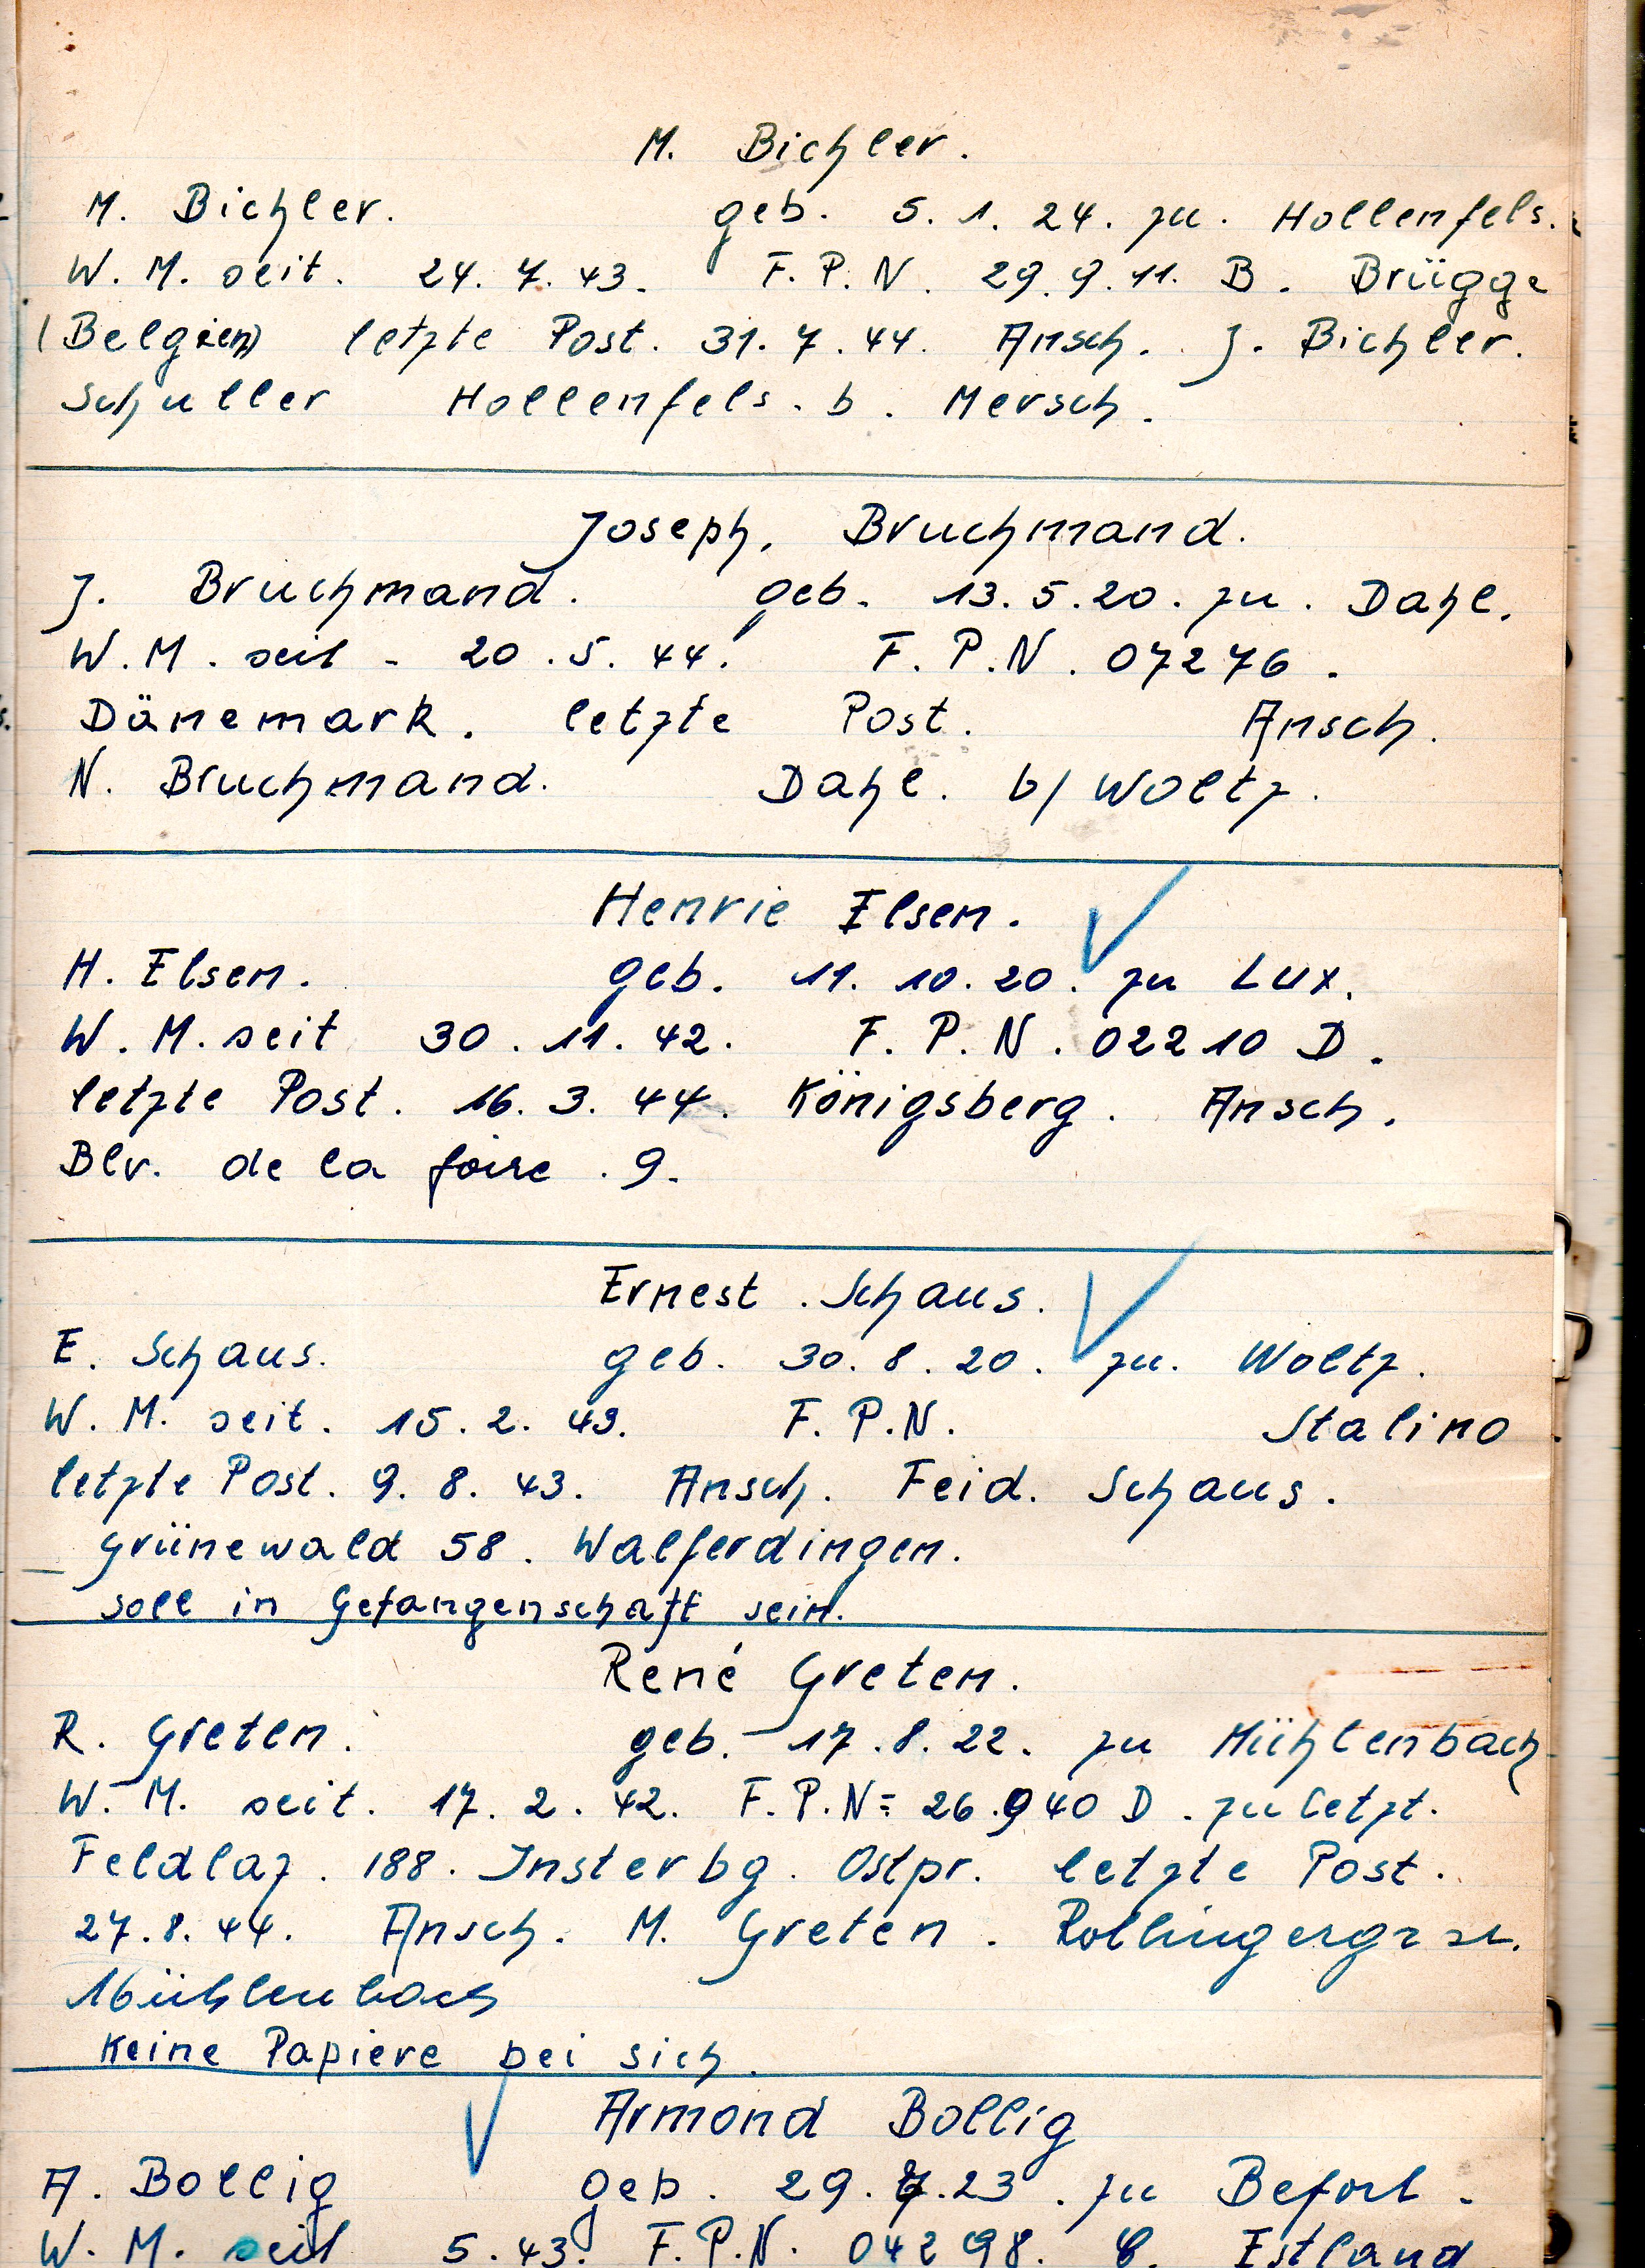 M. Bichler.
M. Bichler. geb. 5.1.24. zu. Hollenfels.
W.M. seit. 24.7.43. F.P.N. 29.9.11. B. Brügge
(Belgien) letzte Post. 31.7.44. Ansch. J. Bichler.
Schuller Hollenfels. b. Mersch.
Joseph, Bruchmand.
J. Bruchmand. geb. 13.5.20. zu. Dahl.
W.M. seit - 20.5.44. F.P.N. 07276.
Dänemark. letzte Post. Ansch.
N. Bruchmand. Dahl. b/ Woltz.
Henrie Elsen.
H. Elsen. geb. 11.10.20. zu Lux.
W.M. seit 30.11.42. F.P.N. 02210 D.
letzte Post. 16.3.44. Königsberg. Ansch.
Blv. de la foire. 9.
Ernest. Schaus.
E. Schaus. geb. 30.8.20. zu. Woltz.
W.M. seit. 15.2.43. F.P.N. Stalino
letzte Post. 9.8.43. Ansch. Feid. Schaus.
Grünewald 58. Walferdingen.
soll in Gefangenschaft sein.
René Greten.
R. Greten. geb. 17.8.22. zu Mühlenbach
W.M. seit. 17.2.42. F.P.N: 26.940 D. zuletzt.
Feldlaz. 188. Insterbg. Ostpr. letzte Post.
27.8.44. Ansch. M. Greten.
Mühlenbach
Keine Papiere bei sich.
Armond Bollig
A. Bollig geb. 29.7.23. zu Befort.
W.M. seit 5.43. F.P.N. 04298. C. Estland